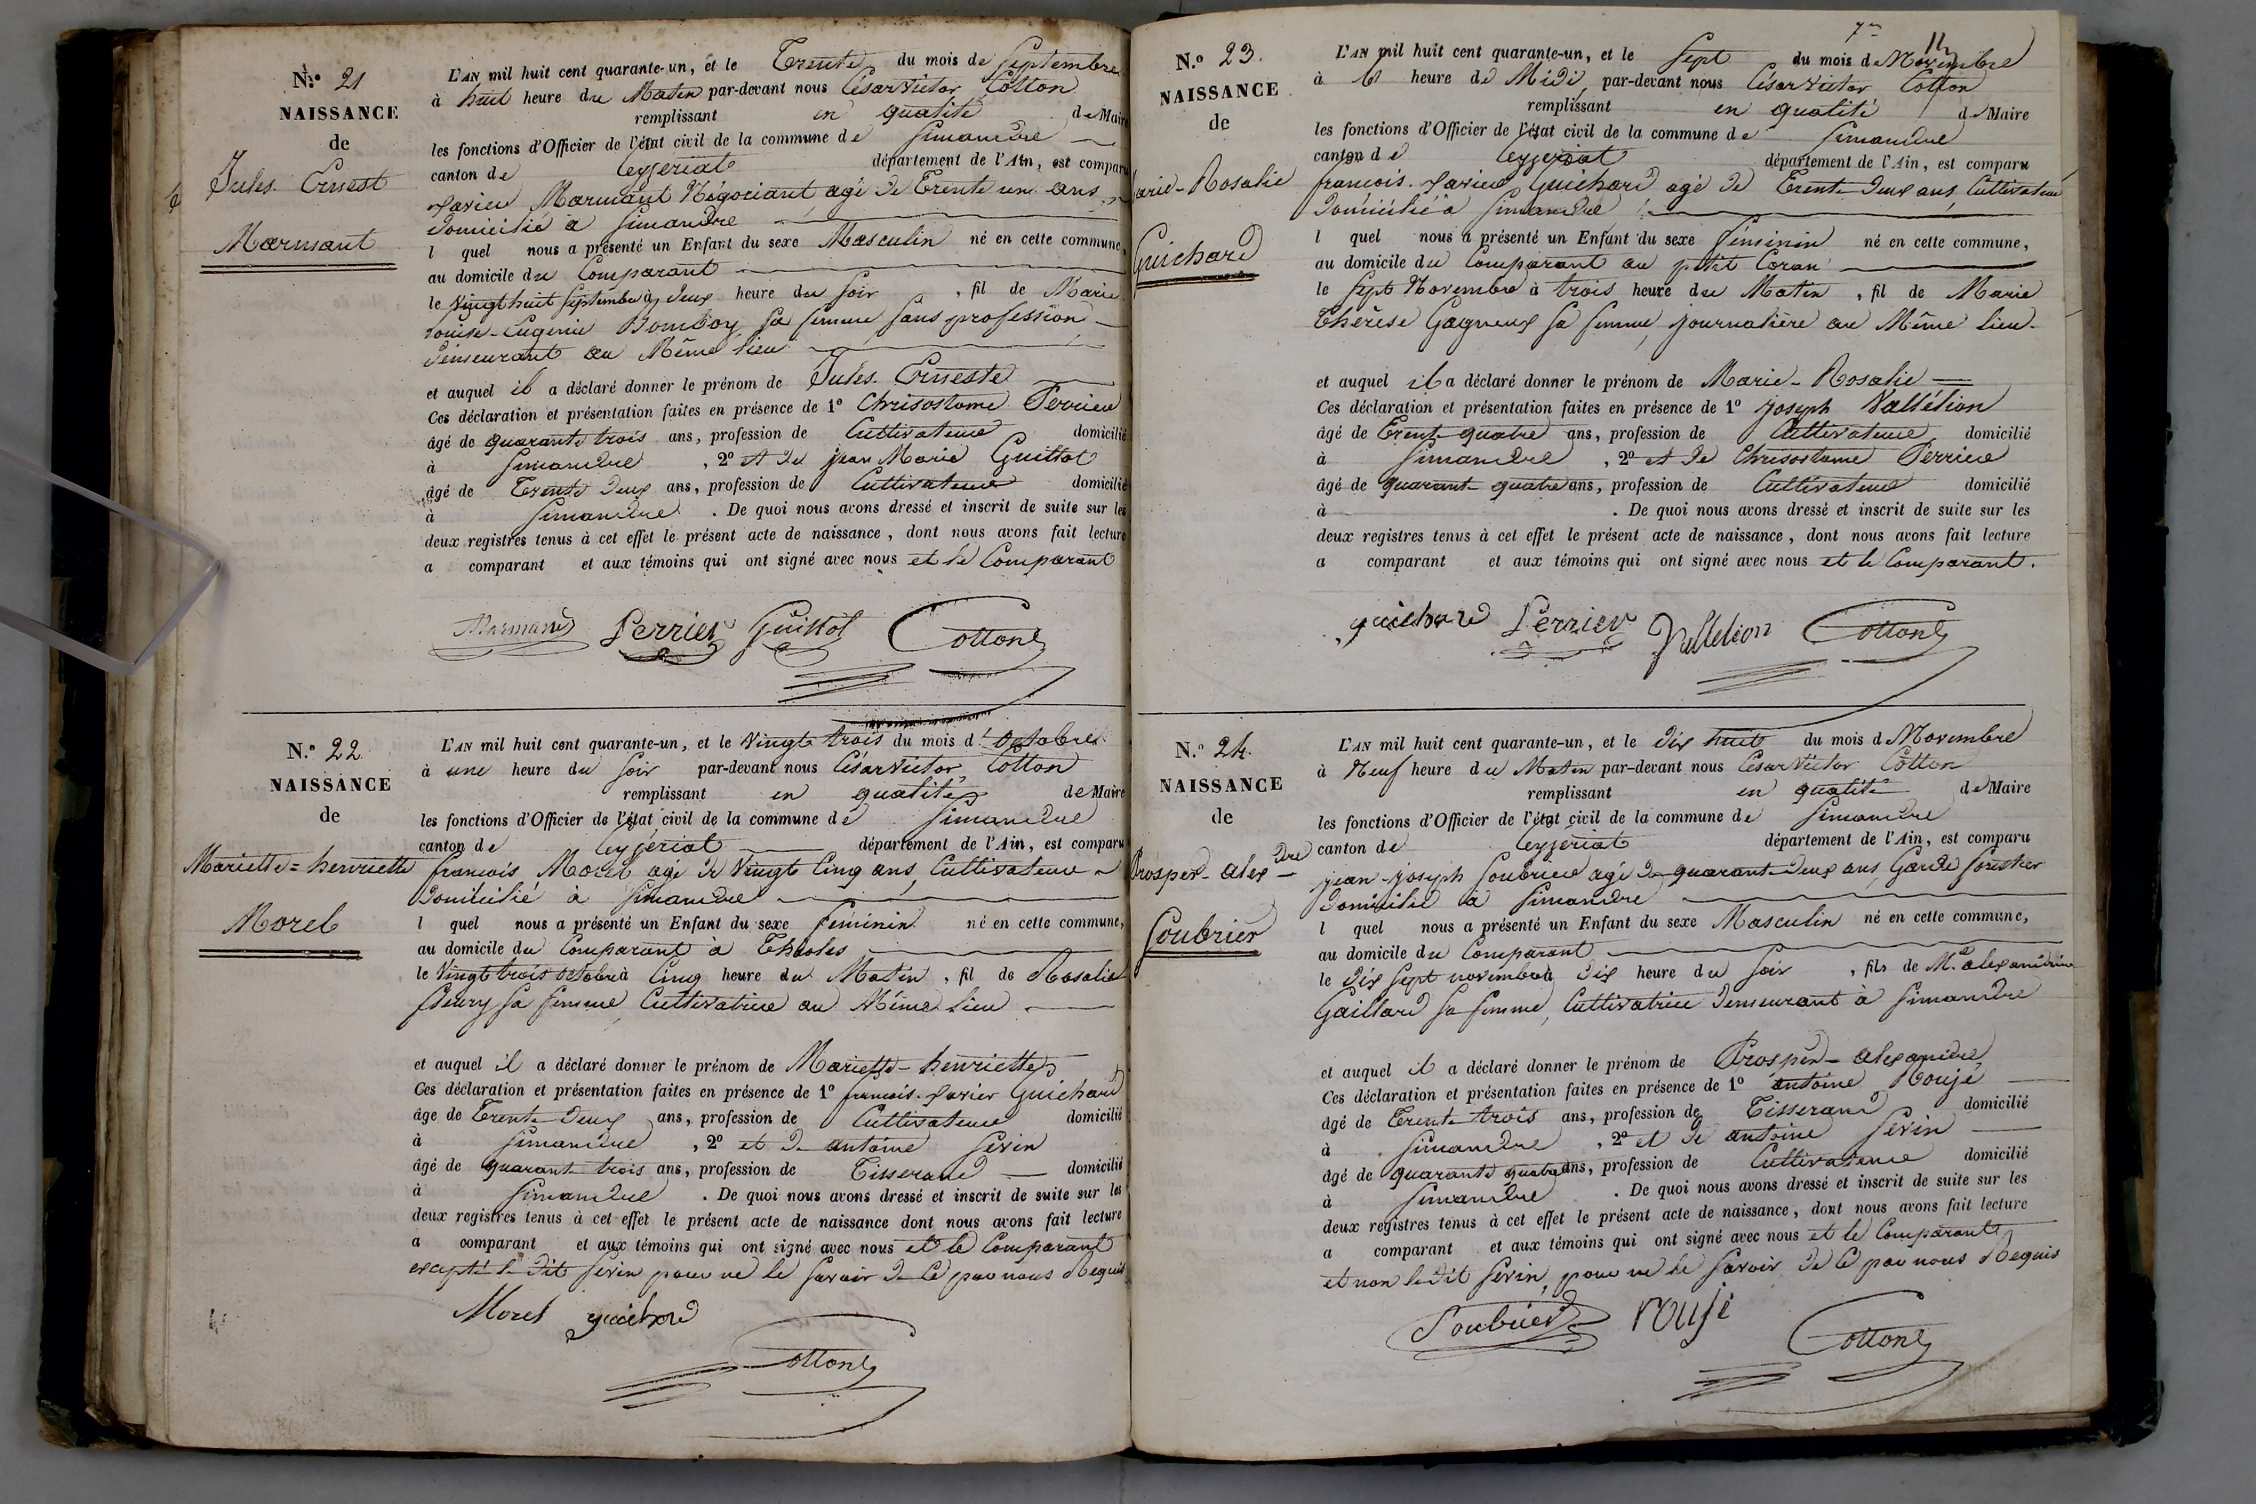 N.º 21
NAISSANCE
de
Jules Ernest
Marmant
L'AN mil huit cent quarante-un, et le Trente du mois de Septembre
à huit heure du Matin par-devant nous César Victor Cotton
remplissant en qualité de Maire
les fonctions d'Officier de l'état civil de la commune de Simandre
canton de Ceyzeriat département de l'Ain, est comparu
Xavier Marmant Négociant agé de Trente un ans
Domicilié à Simandre
l quel nous a présenté un Enfant du sexe Masculin né en cette commune,
au domicile du Comparant
le Vingt huit Septembre à deux heure du Soir, fil de Marie
Louise-Eugénie Bomboy, sa femme sans profession
Demeurant au Même lieu
et auquel il a déclaré donner le prénom de Jules Erneste
Ces déclaration et présentation faites en présence de 1º Chrisostome Perrier
âgé de quarante trois ans, profession de Cultivateur domicilié
à Simandre, 2º et de jean Marie Guillot
âgé de Trente Deux ans, profession de Cultivateur domicilié
à Simandre. De quoi nous avons dressé et inscrit de suite sur les
deux registres tenus à cet effet le présent acte de naissance, dont nous avons fait lecture
a comparant et aux témoins qui ont signé avec nous et le Comparant
Marmand Perrier Guillot Cotton
N.º 22
NAISSANCE
de
Mariette=henriette
Morel
L'AN mil huit cent quarante-un, et le Vingt trois du mois d'Octobre
à une heure du Soir par-devant nous César Victor Cotton
remplissant en qualité de Maire
les fonctions d'Officier de l'état civil de la commune de Simandre
canton de Ceyzériat département de l'Ain, est comparu
françois Morel agé de Vingt Cinq ans, Cultivateur
Domicilié à Simandre
l quel nous a présenté un Enfant du sexe féminin né en cette commune,
au domicile du Comparant à Thioles
le Vingt trois octobre à Cinq heure du Matin, fil de Rosalie
fleury sa femme, Cultivatrice au Même lieu
et auquel il a déclaré donner le prénom de Mariette-henriette
Ces déclaration et présentation faites en présence de 1º françois-xavier Guichard
âge de Trente Deux ans, profession de Cultivateur domicilié
à Simandre, 2º et de antoine Sevin
âgé de quarante trois ans, profession de Tisserand domicilié
à Simandre. De quoi nous avons dressé et inscrit de suite sur les
deux registres tenus à cet effet le présent acte de naissance dont nous avons fait lecture
a comparant et aux témoins qui ont signé avec nous et le Comparant
excepté le dit Sevin pour ne le savoir de ce par nous Requis
Morel guichard
Cotton
7re 11
N.º 23.
NAISSANCE
de
arie-Rosalie
Guichard
L'AN mil huit cent quarante-un, et le Sept du mois de Novembre
à heure de Midi, par-devant nous César Victor Cotton
remplissant en qualité de Maire
les fonctions d'Officier de l'état civil de la commune de Simandre
canton de Ceyzeriat département de l'Ain, est comparu
françois-xavier Guichard agé de Trente Deux ans, Cultivateur
Domicilié à Simandre
l quel nous a présenté un Enfant du sexe féminin né en cette commune,
au domicile du Comparant au petit Coran
le Sept Novembre à trois heure du Matin, fil de Marie
Thérèse Gagneux sa femme, journalière au Même lieu-
et auquel il a déclaré donner le prénom de Marie-Rosalie
Ces déclaration et présentation faites en présence de 1º joseph Vallétion
âgé de Trente quatre ans, profession de Cultivateur domicilié
à Simandre, 2º et de Chrisostome Perrier
âgé de quarante quatre ans, profession de Cultivateur domicilié
à. De quoi nous avons dressé et inscrit de suite sur les
deux registres tenus à cet effet le présent acte de naissance, dont nous avons fait lecture
a comparant et aux témoins qui ont signé avec nous et le Comparant.
guichard Perrier Valletion Cotton
N.º 24.
NAISSANCE
de
Prosper-alexdre
Soubrier
L'AN mil huit cent quarante-un, et le Dix huit du mois d Novembre
à Neuf heure du Matin par-devant nous César Victor Cotton
remplissant en qualité de Maire
les fonctions d'Officier de l'état civil de la commune de Simandre
canton de Ceyzériat département de l'Ain, est comparu
jean-joseph Soubrier agé de quarante Deux ans, Garde forestier
Domicilié à Simandre
l quel nous a présenté un Enfant du sexe Masculin né en cette commune,
au domicile du Comparant
le Dix Sept novembre à Dix heure du Soir, fils de Mie alexandrine
Gaillard sa femme, Cultivatrice Demeurant à Simandre
et auquel il a déclaré donner le prénom de Prosper-alexandre
Ces déclaration et présentation faites en présence de 1º antoine Roujé
âgé de Trente trois ans, profession de Tisserand domicilié
à Simandre, 2º et de antoine Sevin
âgé de quarante quatre ans, profession de Cultivateur domicilié
à Simandre. De quoi nous avons dressé et inscrit de suite sur les
deux registres tenus à cet effet le présent acte de naissance, dont nous avons fait lecture
a comparant et aux témoins qui ont signé avec nous et le Comparant
et non le dit Sevin, pour ne le savoir de ce par nous Requis
Soubrier rouje Cotton